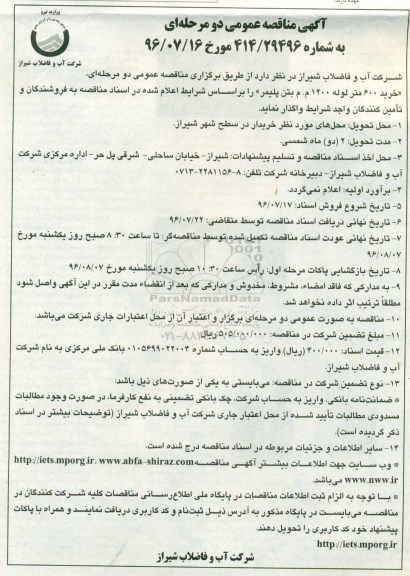 آگهی مناقصه عمومی دو مرحله‌ای
به شماره ۴۱۴/۲۹۴۹۶ مورخ ۹۶/۰۷/۱۶
شرکت آب و فاضلاب شیراز
شرکت آب و فاضلاب شیراز در نظر دارد از طریق برگزاری مناقصه عمومی دو مرحله‌ای،
«خرید ۶۰۰ متر لوله ۱۲۰۰ م.م بتن پلیمر» را براساس شرایط اعلام شده در اسناد مناقصه به فروشندگان و
تأمین کنندگان واجد شرایط واگذار نماید.
۱- محل تحویل: محل‌های مورد نظر خریدار در سطح شهر شیراز.
۲- مدت تحویل: ۲ (دو) ماه شمسی.
۳- محل اخذ اسناد مناقصه و تسلیم پیشنهادات: شیراز- خیابان ساحلی- شرقی پل حر- اداره مرکزی شرکت
آب و فاضلاب شیراز- دبیرخانه شرکت تلفن: ۸-۲۲۸۱۱۵۶-۰۷۱۳
۴- برآورد اولیه: اعلام نمی‌گردد.
۵- تاریخ شروع فروش اسناد: ۹۶/۰۷/۱۷
۶- تاریخ نهائی دریافت اسناد مناقصه توسط متقاضی: ۹۶/۰۷/۲۲
۷- تاریخ نهائی عودت اسناد مناقصه تکمیل شده توسط مناقصه‌گر: تا ساعت ۸:۳۰ صبح روز یکشنبه مورخ
۹۶/۰۸/۰۷
۸- تاریخ بازگشایی پاکات مرحله اول: رأس ساعت ۱۰:۳۰ صبح روز یکشنبه مورخ ۹۶/۰۸/۰۷
۹- به مدارکی که فاقد امضاء، مشروط، مخدوش و مدارکی که بعد از انقضاء مدت مقرر در این آگهی واصل شود
مطلقاً ترتیب اثر داده نخواهد شد.
۱۰- مناقصه به صورت عمومی دو مرحله‌ای برگزار و اعتبار آن از محل اعتبارات جاری شرکت می‌باشد.
۱۱- مبلغ تضمین شرکت در مناقصه: ۵۰۵/۰۰۰/۰۰۰ ریال
۱۲- قیمت اسناد: ۳۰۰/۰۰۰ (ریال) واریز به حساب شماره ۰۱۰۵۶۹۹۰۲۲۰۰۳ بانک ملی مرکزی به نام شرکت
آب و فاضلاب شیراز.
۱۳- نوع تضمین شرکت در مناقصه: می‌بایستی به یکی از صورت‌های ذیل باشد:
* ضمانت‌نامه بانکی، واریز به حساب شرکت، چک بانکی تضمینی به نفع کارفرما، در صورت وجود مطالبات
مسدودی مطالبات تأیید شده از محل اعتبار جاری شرکت آب و فاضلاب شیراز (توضیحات بیشتر در اسناد
ذکر گردیده است).
۱۴- سایر اطلاعات و جزئیات مربوطه در اسناد مناقصه درج شده است.
* وب سایت جهت اطلاعات بیشتر آگهی مناقصه http://iets.mporg.ir, www.abfa-shiraz.com
www.nww.ir می‌باشد.
* با توجه به الزام ثبت اطلاعات مناقصات در پایگاه ملی اطلاع‌رسانی مناقصات کلیه شرکت کنندگان در
مناقصه می‌بایست در پایگاه مذکور به آدرس ذیل ثبت‌نام و کد کاربری دریافت نمایند و همراه با پاکات
پیشنهاد خود کد کاربری را تحویل دهند.
http://iets.mporg.ir
شرکت آب و فاضلاب شیراز
ParsNamadData